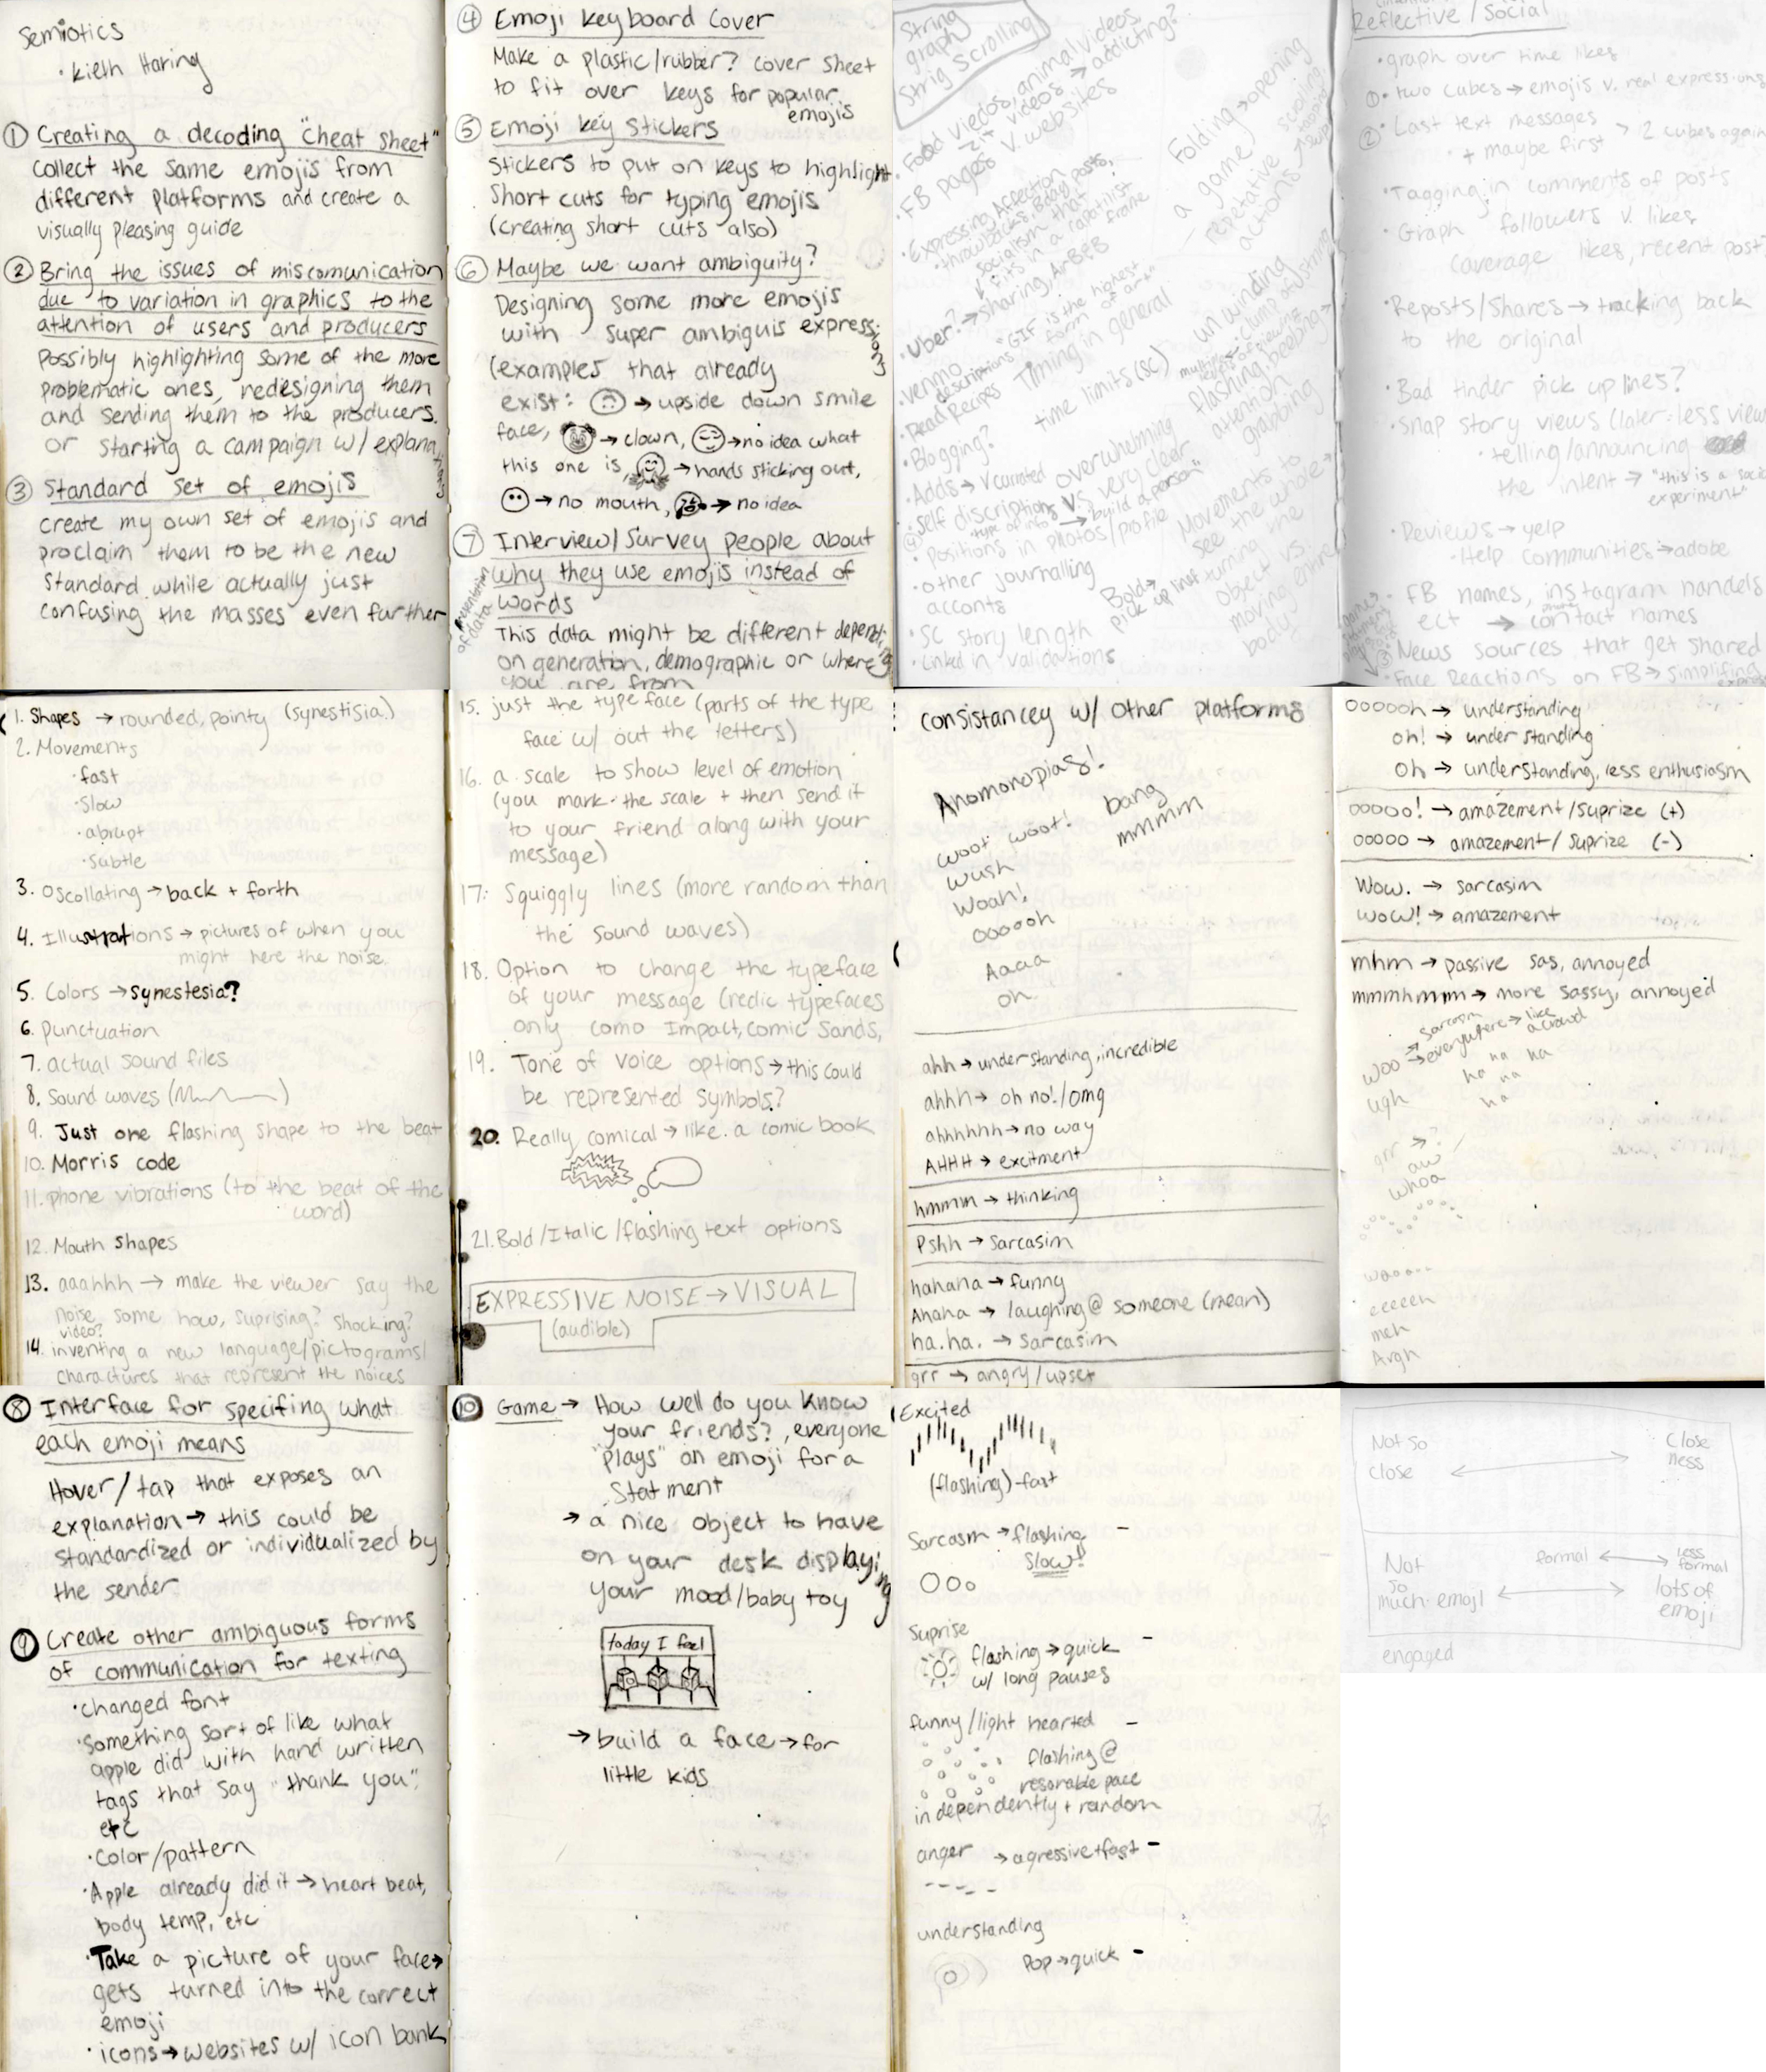 Semiotics
· Kieth Haring
① Creating a decoding "cheat sheet"
collect the same emojis from
different platforms and create a
visually pleasing guide
② Bring the issues of miscomunication
due to variation in graphics to the
attention of users and producers
possibly highlighting some of the more
problematic ones, redesigning them
and sending them to the producers.
or starting a campaign w/
③ Standard set of emojis
create my own set of emojis and
proclaim them to be the new
standard while actually just
confusing the masses even further
④ Emoji keyboard cover
Make a plastic/rubber? cover sheet
to fit over keys for popular
emojis
⑤ Emoji key stickers
stickers to put on keys to highlight
short cuts for typing emojis
(creating short cuts also)
⑥ Maybe we want ambiguity?
Designing some more emojis
with super ambiguis expressions
(examples that already
exist: → upside down smile
face, → clown, → no idea what
this one is, → hands sticking out,
→ no mouth, → no idea
⑦ Interview/Survey people about
why they use emojis instead of
words
presentation
of data
This data might be different depending
on generation, demographic or where
you are from
String
graph
Strig Scrolling
· Food viedos, animal videos,
zit videos → addicting?
· FB pages v. websites
· Expressing Affection
· throwbacks, Bday posts,
socialism that
fits in a capatilist
frame
· Uber? → sharing, AirB&B
"GIF is the highest
form of art"
· venmo
descriptions
Timing in general
· Read Recipts
time limits (sc)
· Blogging?
· Adds → curated
overwhelming
vs. very clear
· self discriptions
→ "build a person"
· Positions in photos/profile
· other journalling
acconts
Bold →
pick up lines
· SC story length
· Linked in validations
Folding → opening
a game
repetative
actions
unwinding
flashing, beeping →
attention
grabbing
Movements to
see the whole →
turning the
object vs.
moving entire
body
Reflective/Social
· graph over time likes
①· two cubes → emojis v. real expressions
②· Last text messages
· + maybe first > 2 cubes again
· Tagging in comments of posts
· Graph followers v. likes
(average likes, recent post
· Reposts/shares → tracking back
to the original
· Bad tinder pick up lines?
· Snap story views (later = less view
· telling/announcing
the intent → "this is a social
experiment"
· Reviews → yelp
· Help communities → adobe
· FB names, instagram handels
ect → contact names
③· News sources that get shared
· Face Reactions on FB → simplifing
1. Shapes → rounded, pointy (synestisia)
2. Movements
· fast
· slow
· abrupt
· subtle
3. Oscollating → back + forth
4. Illustrations → pictures of when you
might here the noise.
5. Colors → synestesia?
6. punctuation
7. actual sound files
8. Sound waves ( )
9. Just one flashing shape to the beat
10. Morris code
11. phone vibrations (to the beat of the
word)
12. Mouth shapes
13. aaahhh → make the viewer say the
noise some how, suprising? shocking?
video?
14. inventing a new language/pictograms/
charactures that represent the noices
15. just the type face (parts of the type
face w/ out the letters)
16. a scale to show level of emotion
(you mark the scale + then send it
to your friend along with your
message)
17. Squiggly lines (more random than
the sound waves)
18. Option to change the typeface
of your message (redic typefaces
only como Impact, Comic Sands,
19. Tone of voice options → this could
be represented symbols?
20. Really comical → like a comic book
21. Bold/Italic/flashing text options
EXPRESSIVE NOISE → VISUAL
(audible)
consistancey w/ other platforms
Anomonopias!
woot woot! bang
wush mmmm
Woah!
ooooh
Aaaa
oh
ahh → understanding, incredible
ahhh → oh no!/omg
ahhhhhh → no way
AHHH → excitment
hmmm → thinking
Pshh → sarcasim
hahaha → funny
Ahaha → laughing @ someone (mean)
ha.ha. → sarcasim
grr → angry/upset
oooooh → understanding
oh! → understanding
Oh → understanding, less enthusiasm
ooooo! → amazement/suprize (+)
ooooo → amazement/suprize (-)
Wow. → sarcasim
wow! → amazement
mhm → passive sas, annoyed
mmmhmmm → more sassy, annoyed
woo → sarcasm
→ everywhere → like a crowd
ugh
ha ha
ha ha
ha
grr → ?
aw
whoa
waoooo
eeeeeh
meh
Argh
⑧ Interface for specifing what
each emoji means
Hover/tap that exposes an
explanation → this could be
standardized or individualized by
the sender
⑨ Create other ambiguous forms
of communication for texting
· changed font
· something sort of like what
apple did with hand written
tags that say "thank you",
etc
· color/pattern
· Apple already did it → heart beat,
body temp, etc
· Take a picture of your face →
gets turned into the correct
emoji
· icons → websites w/ icon bank
⑩ Game → How well do you know
your friends?, everyone
"plays" an emoji for a
statment
→ a nice object to have
on your desk displaying
your mood/baby toy
today I feel
→ build a face → for
little kids
Excited
(flashing)-fast
Sarcasm → flashing -
slow!
Suprise
flashing → quick -
w/ long pauses
funny/light hearted -
flashing @
resorable pace
independently + random
anger → agressive + fast -
understanding
Pop → quick -
Not so close ↔ Closeness
formal ↔ less formal
Not so much emoji ↔ lots of emoji
engaged